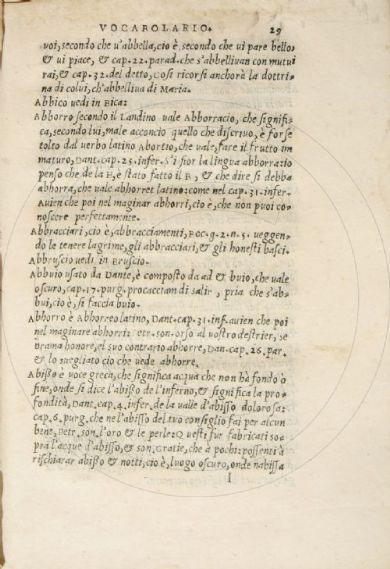 VOCABOLARIO. 29
voi, secondo che u'abbella, cio è, secondo che ui pare bello,
& ui piace, & cap. 22. parad. che s'abbellivan con mutui
rai, & cap. 32. del detto, Cosi ricorsi anchorà la dottri-
na di colui, ch'abbelliva di Maria.
Abbico uedi in Bica:
Abborro secondo il Landino vale Abborracio, che signifi-
ca, secondo lui, male acconcio quello che discriuo, è forse
tolto dal verbo latino Abortio, che vale, fare il frutto im
maturo, Dant. cap. 25. infer. S'i fior la lingua abborratio
penso che de la H, è stato fatto il B, & che dire si debba
abhorra, che vale abhorret latino: come nel cap. 31. infer.
Auien che poi nel maginar abborri, cio è, che non puoi co-
noscere perfettamente.
Abbracciari, cio è, abbracciamenti, Boc. g. 2. n. 5. ueggen-
do le tenere lagrime, gli abbracciari, & gli honesti basci.
Abbruscio uedi in Bruscio.
Abbuio usato da Dante, è composto da ad & buio, che vale
oscuro, cap. 17. purg. procacciam di salir, pria che s'ab-
bui, cio è, si faccia buio.
Abhorro è Abhorreo latino, Dant. cap. 31. inf. auien che poi
nel maginare abhorri: Petr. son. orso al uostro destrier, se
brama honore, el suo contrario abhorre, Dan. cap. 26. par.
& lo suegliato cio che uede abhorre,
Abisso è voce greca, che significa acqua che non hà fondo ò
fine, onde si dice l'abisso de l'inferno, & significa la pro-
fondità, Dant. cap. 4. infer. de la valle d'abisso dolorosa:
cap. 6. purg. che ne l'abisso del tuo consiglio fai per alcun
bene, Petr. son. l'oro & le perle: Questi fur fabricati so-
pra l'acque d'abisso, & son. Gratie, che à pochi: possenti à
rischiarar abisso & notti; cio è, luogo oscuro, onde nabissa
I